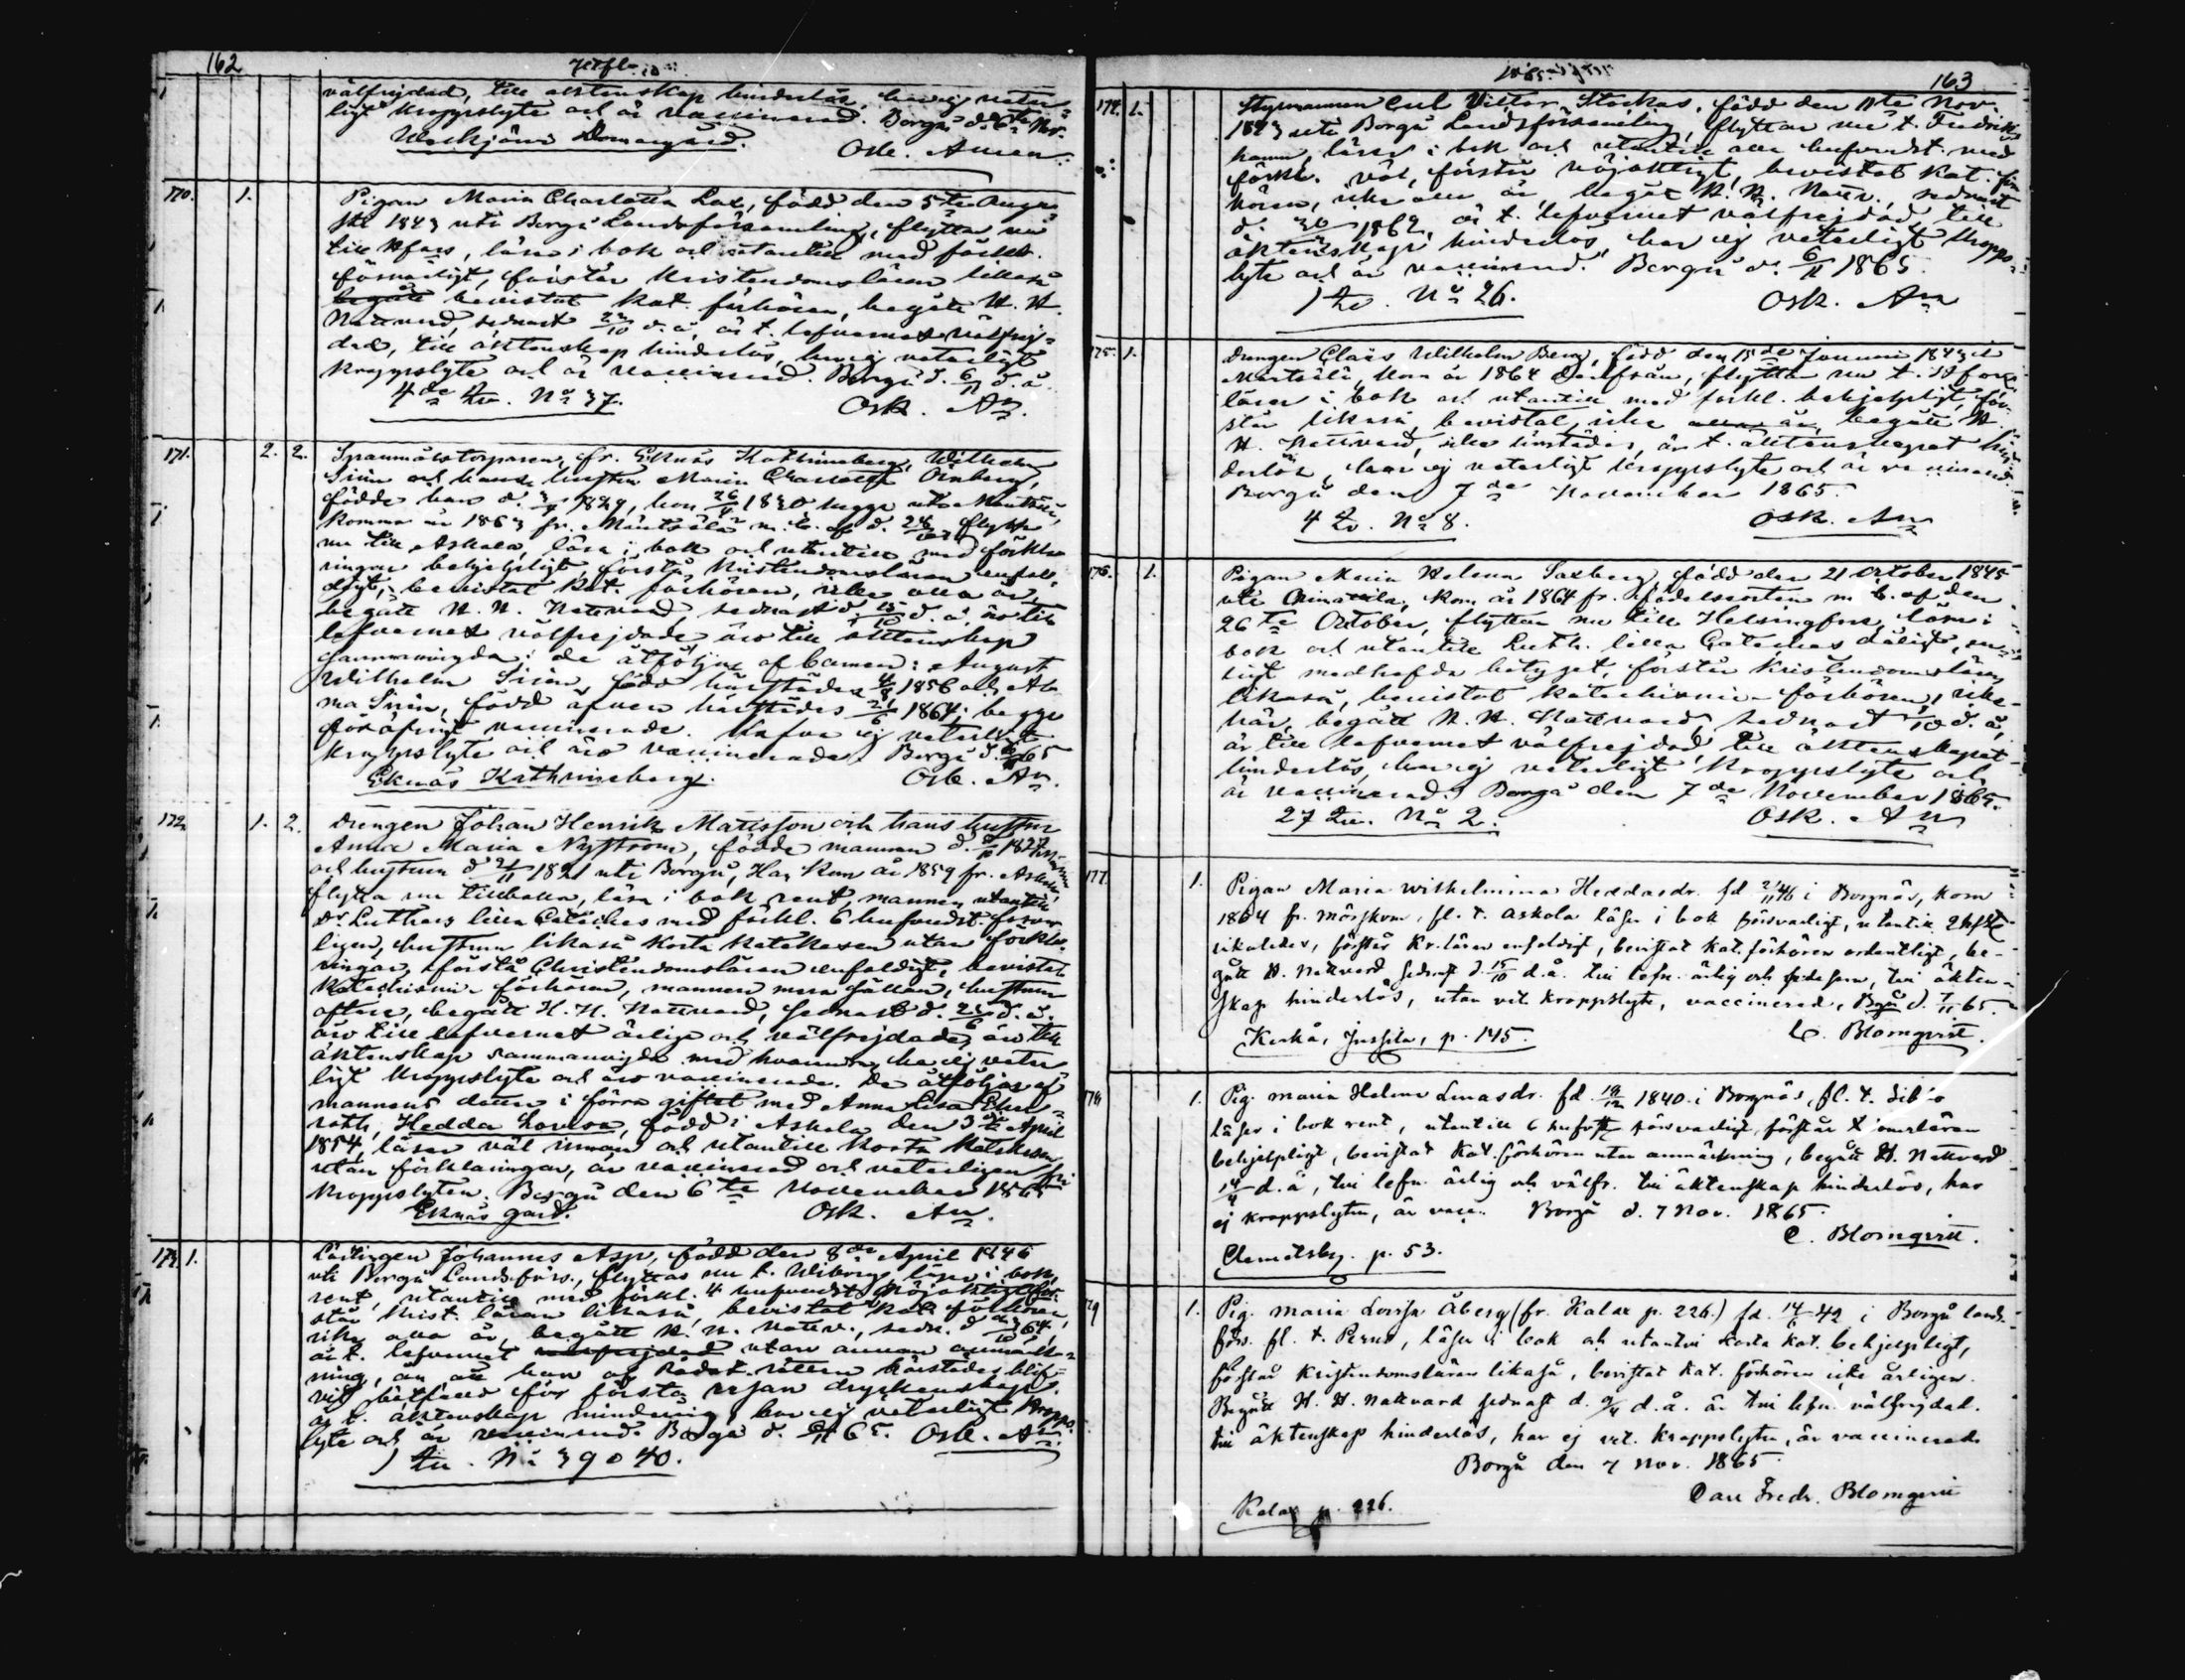 162
Utfl.
välfrejdad, till äktenskap hinderlös, har ej veter-
ligt kroppslyte och är vaccinerad. Borgå d. 6 Nov.
Domargård.
Osk. Am
170. 1. Pigan Maria Charlotta Lax, född den 5te Augu
sti 1843 uti Borgå Landsförsamling, flyttar nu
till Hfors, läser i bok och utantill med förkl.
försvarligt, förstår Kristendomsläran likaså
begått bevistat Kat. förhören, begått H. H.
Nattvard, sednast d. å, är t. lefvernet välfrej-
dad, till äktenskap hinderlös, har ej veterligt
kroppslyte och är vaccinerad. Borgå d. 6/11 d. å
4de No 37.
Osk. Am.
171. 2. 2. Spannmålstorparen, fr. Eknäs Kathrineberg, Wilhelm
Sirén och hans hustru Maria Charlotta Örnberg,
födde han d. 1829, hon 26/4 1830 begge uti
komna år 1863 fr. Mäntsälä m. b. af d. flytta
nu till Askola, läsa i bok och utantill med förkla
ringar behjelpligt, förstå Kristendomsläran enfal-
digt, bevistat Kat. förhören, icke alla år,
begått H. H. Nattvard, sednast d. 15/10 d. å, äro till
lefvernet välfrejdade äro till äktenskap
sammanvigda; de åtföljas af barnen: August
Wilhelm Sirén, född härstädes 4/8 1856 och Al
ma Sirén, född äfven härstädes 1864; begge
föröfrigt vaccinerade. Hafva ej veterligt
kroppslyte och äro vaccinerade. Borgå d. 65
Eknäs Kathrineberg.
Osk. Am.
172. 1. 2. Drengen Johan Henrik Mattsson och hans hustru
Anna Maria Nyström, födde mannen d. 1827
och hustrun d. 1821 uti Borgå, Han kom år 1859 fr. Askola,
flytta nu tillbaka, läsa i bok rent, mannen utantill
Dr Luthers lilla Cateches med förkl. 6 hufvudst. försvar
ligen, hustrun likaså korta Katekesen utan förkla-
ringar, förstå Christendomsläran enfaldigt, bevistat
Katechismi-förhören, mannen mera sällan, hustrun
oftare, begått H. H. Nattvard, sednast d. d. å.
äro till lefvernet ärlige och välfrejdade, äro till
äktenskap sammanvigda med hvarandra, ha ej veter
ligt kroppslyte och äro vaccinerade. De åtföljas af
mannens dotter i förra giftet med Anna Lisa
Hedda Lovisa, född i Askola den 3de April
1854, läser väl innan och utantill korta Katekesen
utan förklaringar, är vaccinerad och veterligen fri
kroppslyten. Borgå den 6te November 1865
Eknäs gård.
Osk. Am.
173. 1. Lärlingen Johannes Asp, född den 8de April 1846
uti Borgå Landsförs., flyttar nu t. Wiborg, läser i bok
rent, utantill med förkl. 4 hufvudst. nöjaktigt för-
står Krist. läran likaså, bevistat Kat. förhören,
icke alla år, begått H. H. Nattv., sedn. d. 64,
är t. lefvernet välfrejdad utan annan anmärk-
ning, än att han af Rådst. rätten härstädes blif-
vit bötfälld för första resan dryckenskap.
är t. äktenskap minderårig, har ej veterligt kropps
lyte och är vaccinerad. Borgå d. 65. Osk. Am.
1 No 39 o 40.
163
174. 1. Styrmannen Carl Victor Stockas, född den 11te Nov.
1843 uti Borgå Landsförsamling, flyttar nu t. Fredriks
hamn, läser i bok och utantill alla hufvudst. med
förkl. väl, förstår nöjaktigt, bevistat Kat. för
hören, icke alla år, begått H. H. Nattv., sednast
d. 1862, är t. lefvernet välfrejdad, till
äktenskap hinderlös, har ej veterligt kropps-
lyte och är vaccinerad. Borgå d. 6/11 1865.
1 No 26.
Osk. Am
175. 1. Drengen Claës Wilhelm Berg, född den 15de Januari 1843 i
Mäntsälä, kom år 1864 därifrån, flyttar nu t. Hfors,
läser i bok och utantill med förkl. behjelpligt, för-
står likaså, bevistat, icke alla år, begått H.
H. Nattvard, icke härstädes, är t. äktenskapet hin
derlös, har ej veterligt kroppslyte och är vaccinerad.
Borgå den 7de November 1865.
4 No 8.
Osk. Am
176. 1. Pigan Maria Helena Saxberg, född den 21 October 1845
uti Orimattila, kom år 1864 fr. födelseorten m. b. af den
26te October, flyttar nu till Helsingfors, läser i
bok och utantill Luth. lilla Cateches dåligt, en-
ligt medhafda betyget, förstår Kristendomsläran
likaså, bevistat Katechismi-förhören, icke
här, begått H. H. Nattvard, sednast 1/10 d. å,
är till lefvernet välfrejdad, till äktenskapet
hinderlös, har ej veterligt kroppslyte och
är vaccinerad. Borgå den 7de November 1865.
27 No 2.
Osk. Am
177. 1. Pigan Maria Wilhelmina Heddasdr. fd 21/11 46 i Borgnäs, kom
1864 fr. Mörskom, fl. t. Askola läser i bok försvarligt, utantill 2 hfst.
likaledes, förstår Kr. läran enfaldigt, bevistat kat. förhören ordentligt, be-
gått H. Nattvard sednast d. 15/10 d. å. till lefv. ärlig och frejd, till äkten-
skap hinderlös, utan vet. kroppslyte, vaccinerad, Bgå d. 7/11 65.
Kerkå, Jussila, p. 145.
C. Blomqvist.
178. 1. Pig. Maria Helena Linasdr. fd. 19/12 1840 i Borgnäs, fl. t. Sibbo
läser i bok rent, utantill 6 hufvst. försvarligt, förstår X:domsläran
behjelpligt, bevistat Kat. förhören utan anmärkning, begått H. Nattvard
14/4 d. å, till lefv. ärlig och välfr. till äktenskap hinderlös, har
ej kroppslyten, är vacc. Borgå d. 7 Nov. 1865.
C. Blomqvist.
Clemetsby. p. 53.
179 1. Pig. Maria Lovisa Åberg (fr. Kalax p. 226.) fd. 14/6 42 i Borgå lands-
förs. fl. t. Perno, läser i bok och utantill korta kat. behjelpligt,
förstår Kristendomsläran likaså, bevistat kat. förhören icke årligen.
Begått H. H. Nattvard sednast d. 9/4 d. å. är till lefv. välfrejdad.
till äktenskap hinderlös, har ej vet. kroppslyten, är vaccinerad.
Borgå den 7 Nov. 1865.
Carl Fredr. Blomqvist
Kalax p. 226.